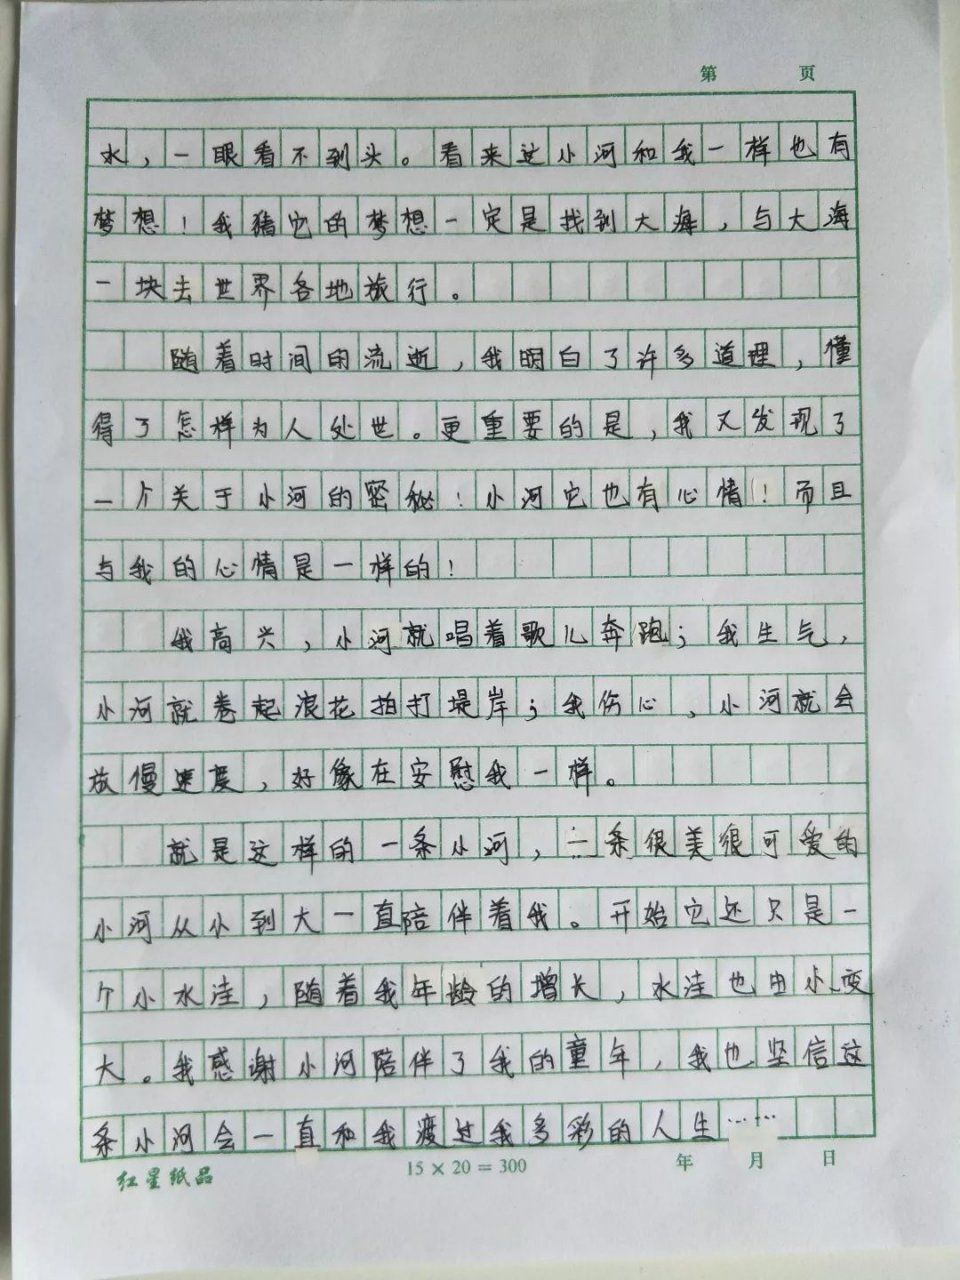 第 页
水，一眼看不到头。看来这小河和我一样也有
梦想！我猜它的梦想一定是找到大海，与大海
一块去世界各地旅行。
随着时间的流逝，我明白了许多道理，懂
得了怎样为人处世。更重要的是，我又发现了
一个关于小河的密秘！小河它也有心情！而且
与我的心情是一样的！
我高兴，小河就唱着歌儿奔跑；我生气，
小河就卷起浪花拍打堤岸；我伤心，小河就会
放慢速度，好像在安慰我一样。
就是这样的一条小河，一条很美很可爱的
小河从小到大一直陪伴着我。开始它还只是一
个小水洼，随着我年龄的增长，水洼也由小变
大。我感谢小河陪伴了我的童年，我也坚信这
条小河会一直和我渡过我多彩的人生……
红星纸品 15×20=300 年 月 日